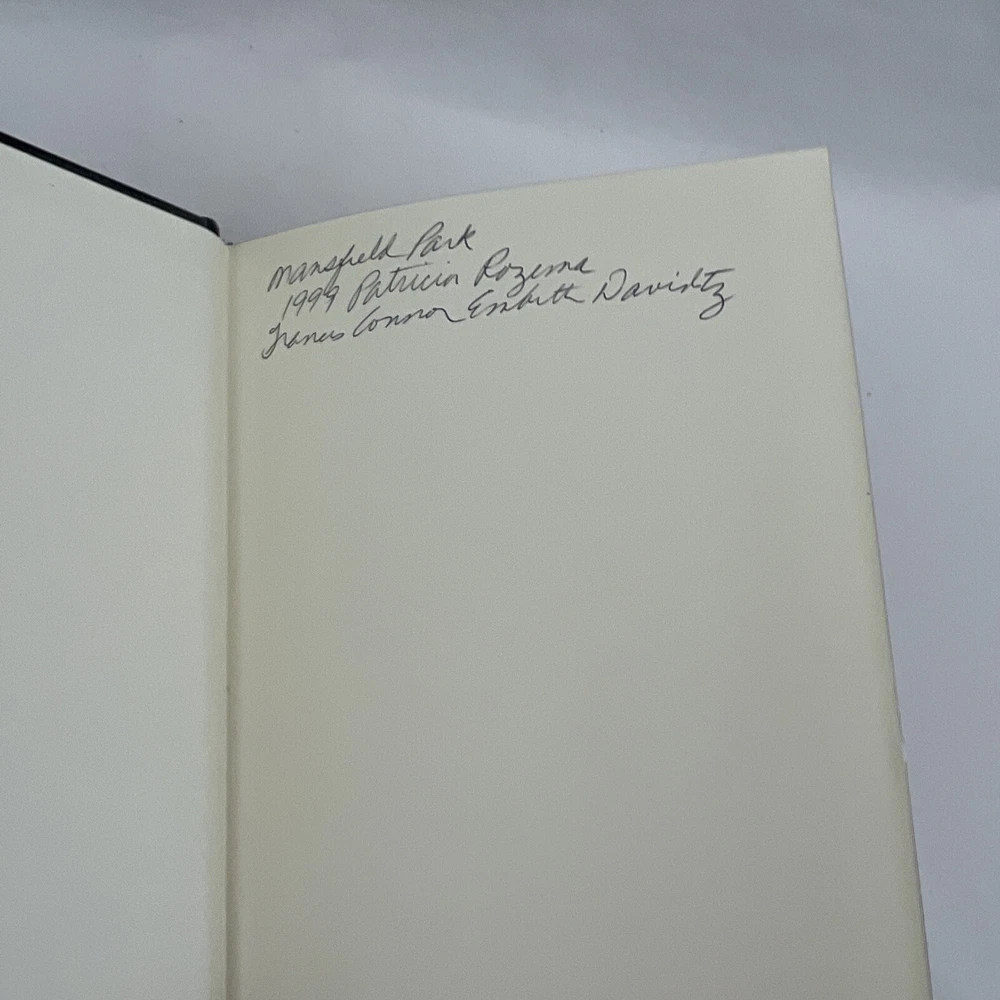 Mansfield Park
1999 Patricia Rozema
Francis Connor Embeth Davidtz